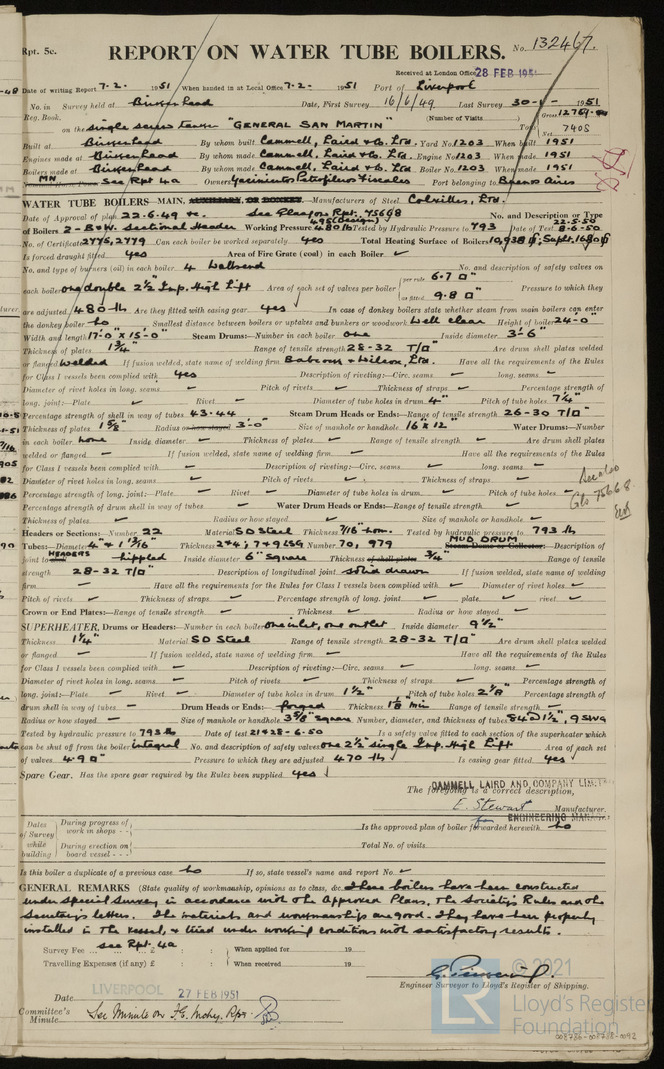 Rpt. 5c.
REPORT ON WATER TUBE BOILERS.
No. 132467.
Received at London Office 28 FEB 1951
Date of writing Report 7.2. 1951 When handed in at Local Office 7.2. 1951 Port of Liverpool
No. in Survey held at Birkenhead Date, First Survey 16/6/49 Last Survey 30-1- 1951
Reg. Book. (Number of Visits ) Gross
on the single screw tanker "GENERAL SAN MARTIN" Tons Net 7408
Built at Birkenhead By whom built Cammell, Laird & Co. Ltd. Yard No 1203 When built 1951
Engines made at Birkenhead By whom made Cammell, Laird & Co. Ltd. Engine No 1203 When made 1951
Boilers made at Birkenhead By whom made Cammell, Laird & Co. Ltd. Boiler No 1203 When made 1951
MN see Rpt 4a Owners Yacimientos Petroliferos Fiscales Port belonging to Buenos Aires
WATER TUBE BOILERS—MAIN, AUXILIARY, OR DONKEY.—Manufacturers of Steel Colvilles, Ltd.
Date of Approval of plan 22.6.49 &c. See Glasgow Rpt. 75668 No. and Description or Type
of Boilers 2-B&W. Sectional Header Working Pressure 480 lb 495 (Design) Tested by Hydraulic Pressure to 793 Date of Test 22.5.50 8-6-50
No. of Certificate 2775, 2779 Can each boiler be worked separately yes Total Heating Surface of Boilers 10,938 □', Supht. 1680 □'
Is forced draught fitted yes Area of Fire Grate (coal) in each Boiler ✓
No. and type of burners (oil) in each boiler 4 Wallsend No. and description of safety valves on
each boiler one double 2½" Imp. High Lift Area of each set of valves per boiler { per rule 6.7 □" as fitted 9.8 □" Pressure to which they
are adjusted 480 lb Are they fitted with easing gear yes In case of donkey boilers state whether steam from main boilers can enter
the donkey boiler no Smallest distance between boilers or uptakes and bunkers or woodwork Well clear Height of boiler 24-0"
Width and length 17'-0" x 15'-0" Steam Drums:—Number in each boiler one Inside diameter 3'-6"
Thickness of plates 1¾" Range of tensile strength 28-32 T/□" Are drum shell plates welded
or flanged Welded If fusion welded, state name of welding firm Babcock & Wilcox, Ltd. Have all the requirements of the Rules
for Class I vessels been complied with yes Description of riveting:—Circ. seams ✓ long. seams ✓
Diameter of rivet holes in long. seams ✓ Pitch of rivets ✓ Thickness of straps ✓ Percentage strength of
long. joint:—Plate ✓ Rivet ✓ Diameter of tube holes in drum 4" Pitch of tube holes 7¼"
Percentage strength of shell in way of tubes 43.44 Steam Drum Heads or Ends:—Range of tensile strength 26-30 T/□"
Thickness of plates 1⅝" Radius or how stayed 3'-0" Size of manhole or handhole 16" x 12" Water Drums:—Number
in each boiler none Inside diameter ✓ Thickness of plates ✓ Range of tensile strength ✓ Are drum shell plates
welded or flanged ✓ If fusion welded, state name of welding firm ✓ Have all the requirements of the Rules
for Class I vessels been complied with ✓ Description of riveting:—Circ. seams ✓ long. seams ✓
Diameter of rivet holes in long. seams ✓ Pitch of rivets ✓ Thickness of straps ✓
Percentage strength of long. joint:—Plate ✓ Rivet ✓ Diameter of tube holes in drum ✓ Pitch of tube holes ✓
Percentage strength of drum shell in way of tubes ✓ Water Drum Heads or Ends:—Range of tensile strength ✓
Thickness of plates ✓ Radius or how stayed ✓ Size of manhole or handhole ✓
See also Glo 75668
Headers or Sections:—Number 22 Material SD Steel Thickness 7/16" nom. Tested by hydraulic pressure to 793 lb
Tubes:—Diameter 4" & 1 13/16" Thickness 2 & 4; 7 & 9 LSG Number 70, 979 MUD DRUM Steam Dome or Collector:—Description of
joint to HEADERS nippled Inside diameter 6" square Thickness of shell plates ¾" Range of tensile
strength 28-32 T/□" Description of longitudinal joint solid drawn If fusion welded, state name of welding
firm ✓ Have all the requirements for the Rules for Class I vessels been complied with ✓ Diameter of rivet holes ✓
Pitch of rivets ✓ Thickness of straps ✓ Percentage strength of long. joint ✓ plate ✓ rivet ✓
Crown or End Plates:—Range of tensile strength ✓ Thickness ✓ Radius or how stayed ✓
SUPERHEATER, Drums or Headers:—Number in each boiler one inlet, one outlet Inside diameter 9½"
Thickness 1¼" Material SD Steel Range of tensile strength 28-32 T/□" Are drum shell plates welded
or flanged ✓ If fusion welded, state name of welding firm ✓ Have all the requirements of the Rules
for Class I vessels been complied with ✓ Description of riveting:—Circ. seams ✓ long. seams ✓
Diameter of rivet holes in long. seams ✓ Pitch of rivets ✓ Thickness of straps ✓ Percentage strength of
long. joint:—Plate ✓ Rivet ✓ Diameter of tube holes in drum 1½" Pitch of tube holes 2⅞" Percentage strength of
drum shell in way of tubes ✓ Drum Heads or Ends:— forged Thickness 1⅛" min Range of tensile strength ✓
Radius or how stayed ✓ Size of manhole or handhole 3⅝" square Number, diameter, and thickness of tubes 84 @ 1½", 9 SWG
Tested by hydraulic pressure to 793 lb Date of test 21 & 28-6-50 Is a safety valve fitted to each section of the superheater which
can be shut off from the boiler integral No. and description of safety valves one 2½" single Imp. High Lift Area of each set
of valves 4.9 □" Pressure to which they are adjusted 470 lb Is easing gear fitted yes
Spare Gear. Has the spare gear required by the Rules been supplied yes
CAMMELL LAIRD AND COMPANY LIMITED
The foregoing is a correct description,
E. Stewart Manufacturer.
for ENGINEERING MANAGER
Dates of Survey while building { During progress of work in shops - - } Is the approved plan of boiler forwarded herewith no
{ During erection on board vessel - - - } Total No. of visits
Is this boiler a duplicate of a previous case no If so, state vessel's name and report No. ✓
GENERAL REMARKS (State quality of workmanship, opinions as to class, &c. These boilers have been constructed
under special Survey in accordance with the Approved Plans, the Society's Rules and the
Secretary's letters. The materials and workmanship are good. They have been properly
installed in the vessel, & tried under working conditions with satisfactory results.
see Rpt 4a
Survey Fee ... £ : : } When applied for 19
Travelling Expenses (if any) £ : : } When received 19
Engineer Surveyor to Lloyd's Register of Shipping.
LIVERPOOL 27 FEB 1951
Date
Committee's Minute See Minute on F.E. Mchy. Rpt.
© 2021
Lloyd's Register
Foundation
008786-008798-0092